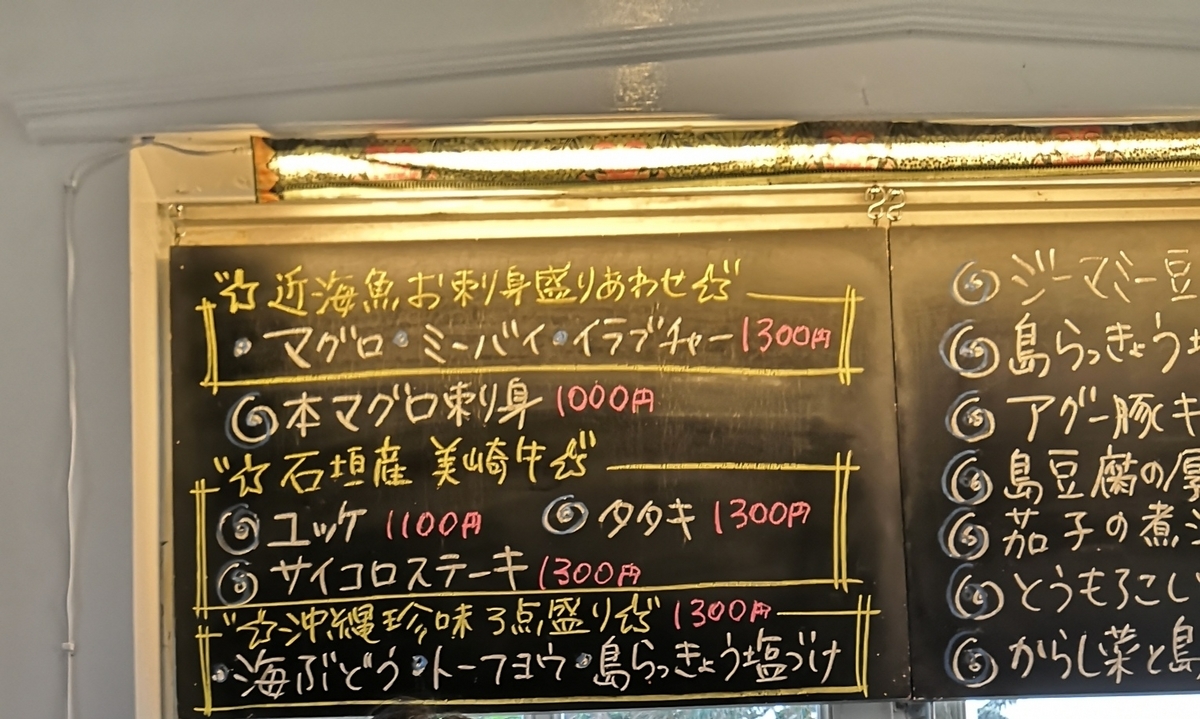 ☆近海魚お刺身盛りあわせ☆
・マグロ・ミーバイ・イラブチャー1300円
本マグロ刺り身 1000円
☆石垣産 美崎牛☆
ユッケ 1100円 タタキ 1300円
サイコロステーキ 1300円
☆沖縄珍味3点盛り☆ 1300円
・海ぶどう・トーフヨウ・島らっきょう塩づけ
ジーマミー豆
島らっきょう
アグー豚
島豆腐の厚
茄子の煮
とうもろこし
からし菜と島